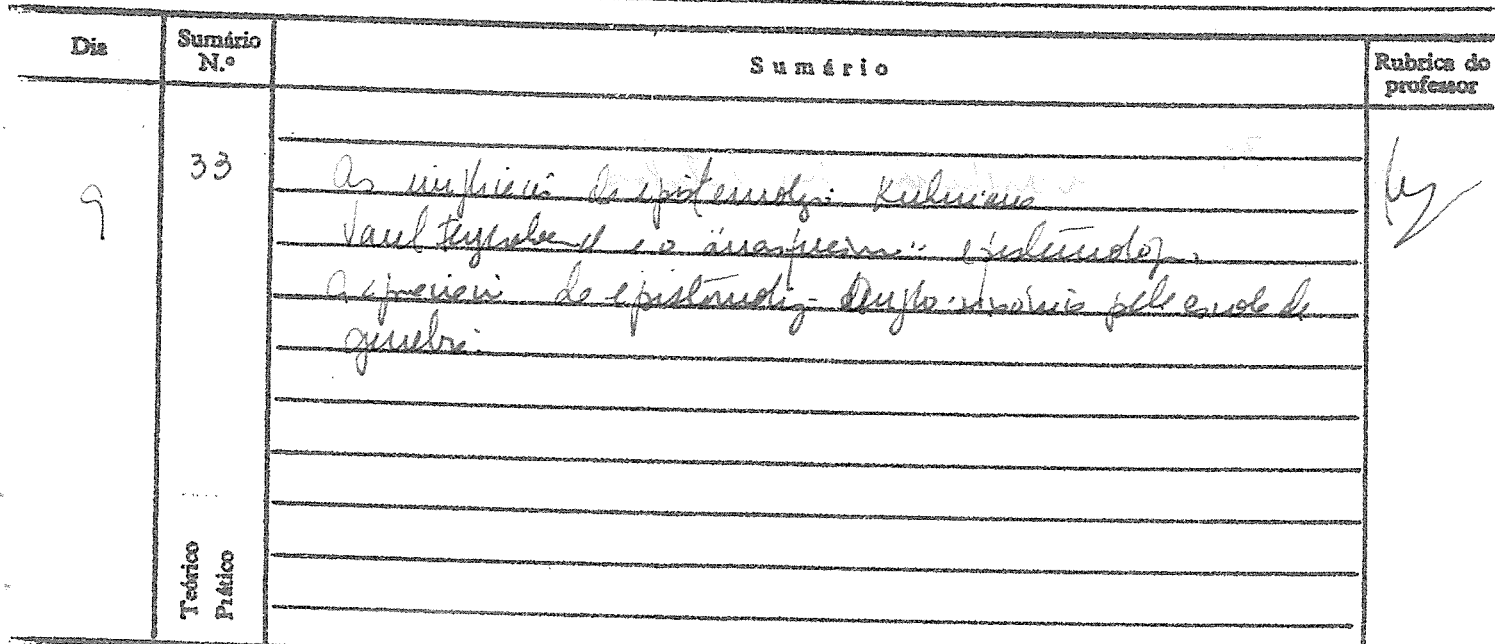 Dia
Sumário N.º
Sumário
Rubrica do professor
9
33
As da epistemologia Kuhniana
Paul Feyerabend e o anarquismo epistemológico
A da epistemologia pela escola de
genebra.
Teórico
Prático